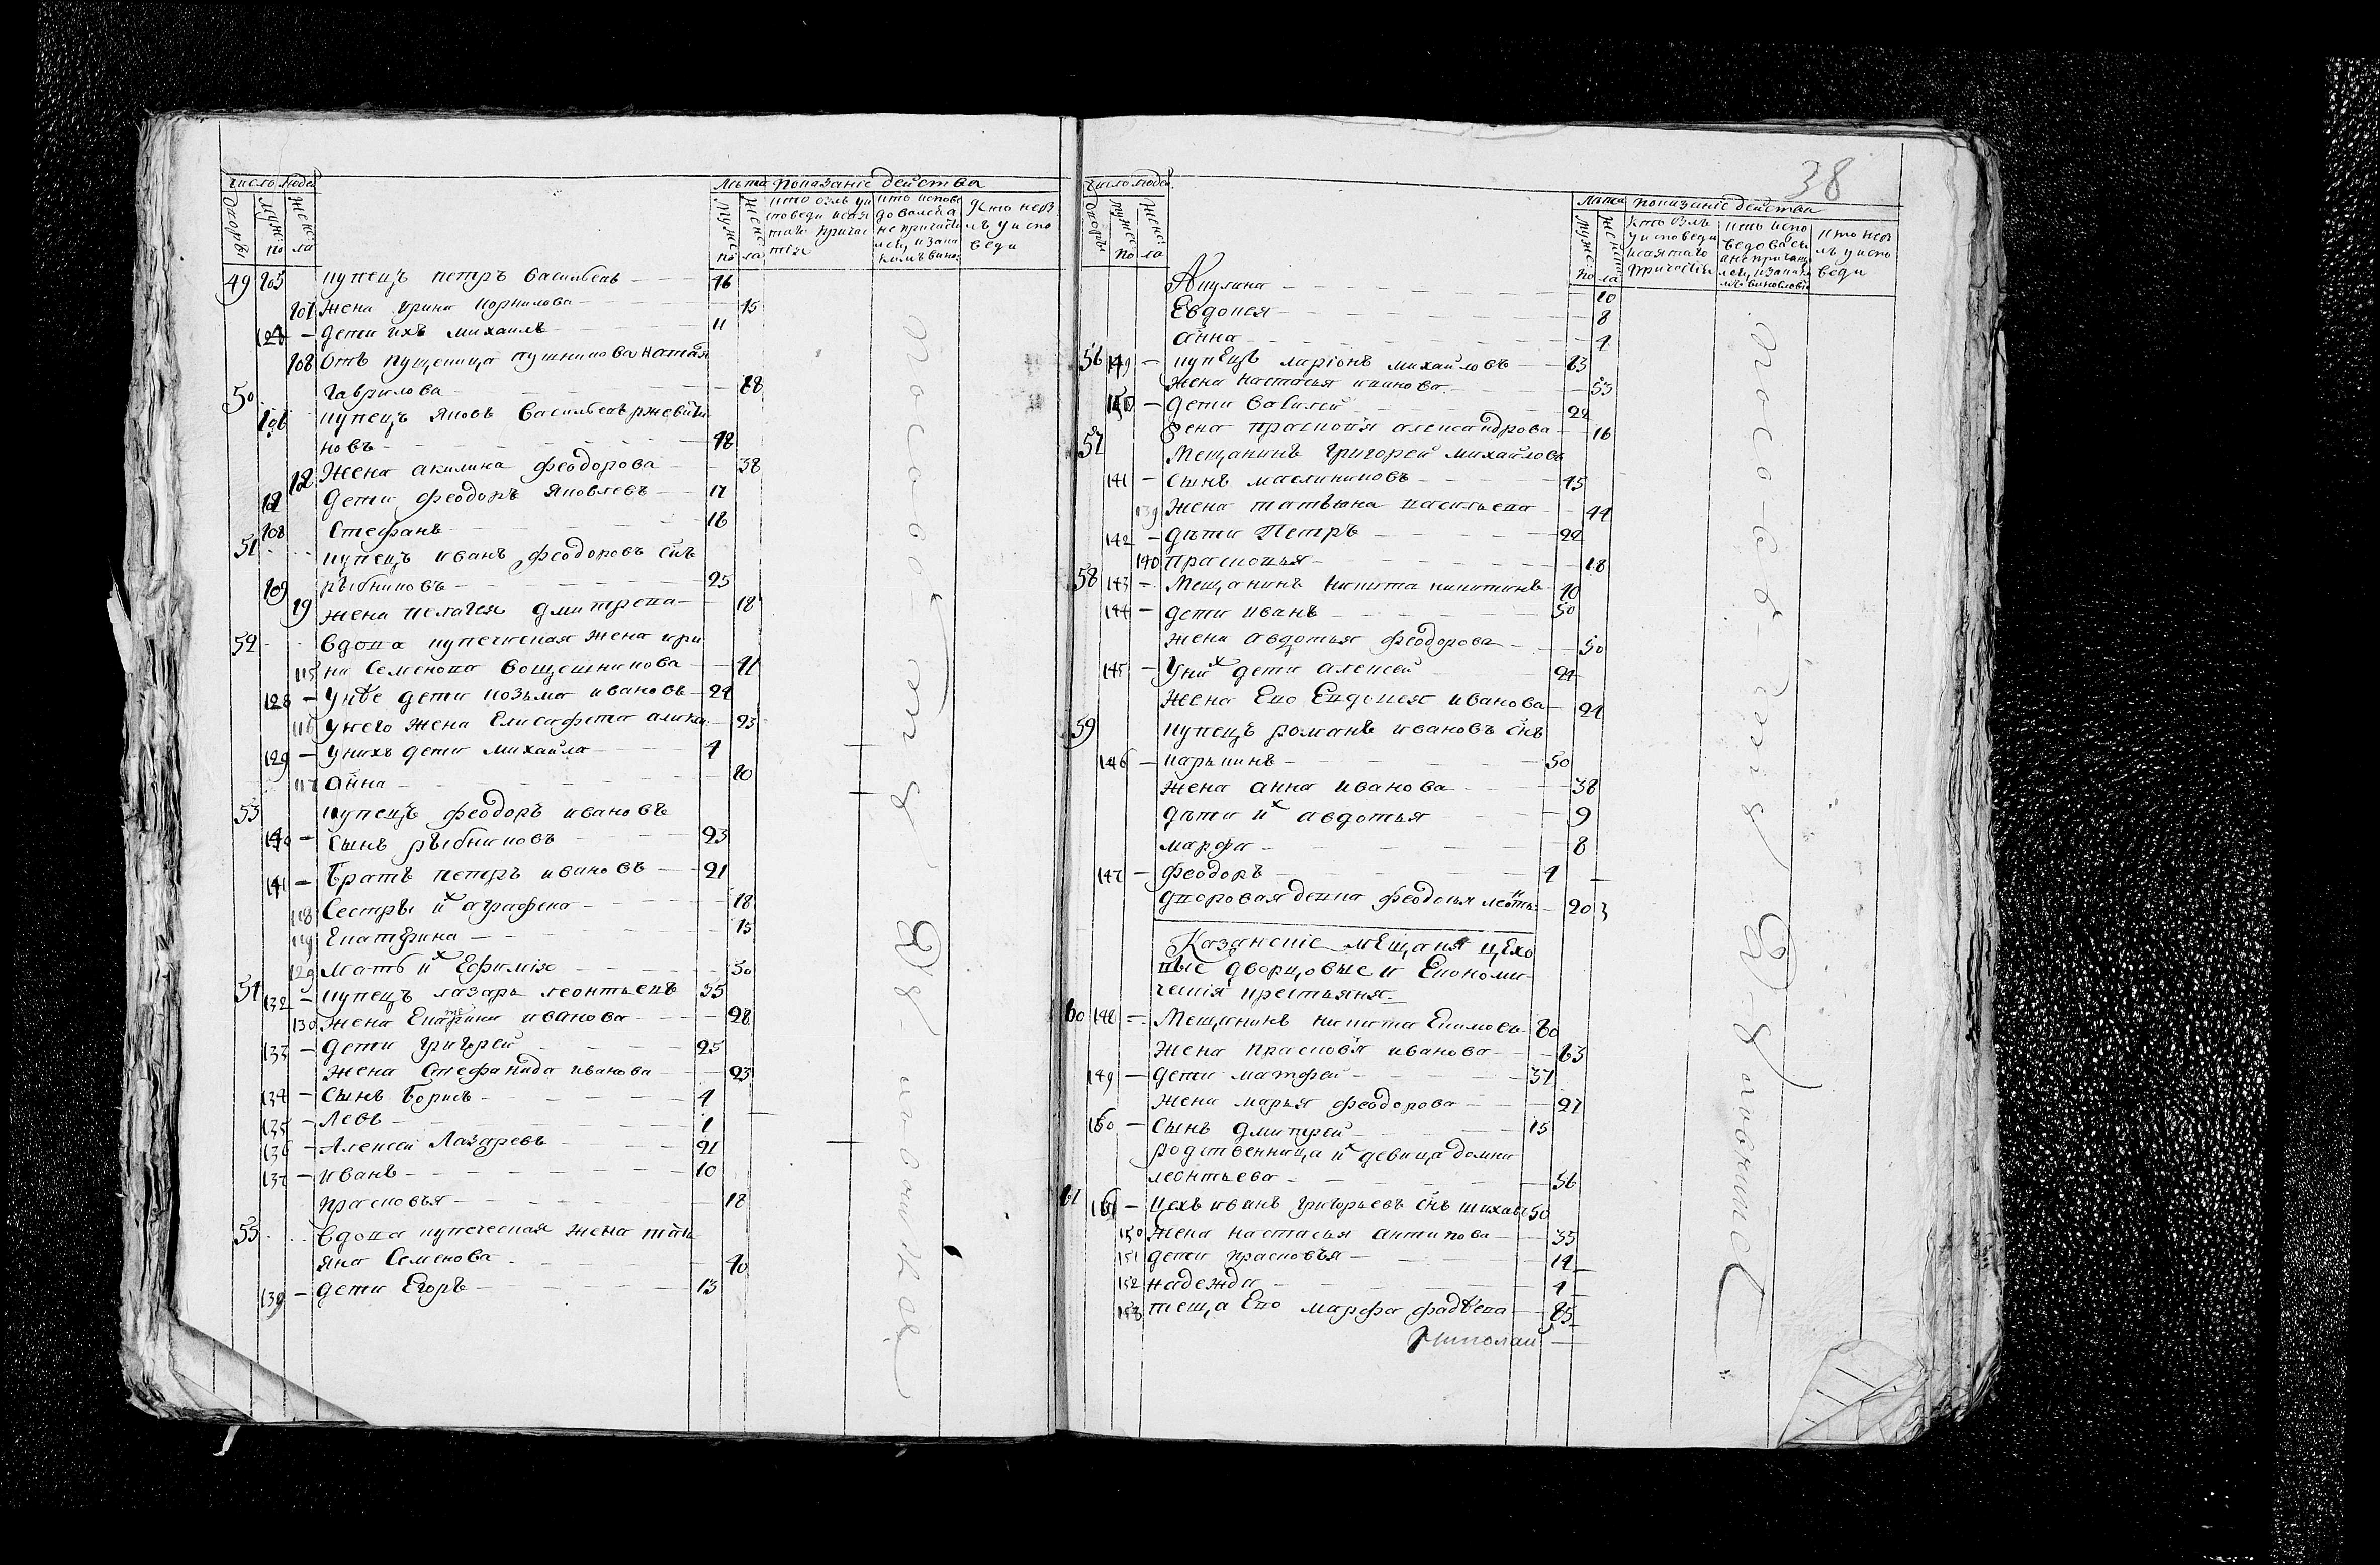 число людей
Дворы
муже
женс
по
ла
Лѣта показаніе действа
муже
женс
по
ла
кто былъ у ис
поведи и свя
таго причас
тія
кто испове
довался а
не причасти
лся, и за ка
кимъ вино
кто небы
лъ у испо
веди
49 105 купецъ петръ Васильевъ 46
107 жена ирина корнилова 45
дети ихъ михаилъ 11
108 отъ
Гаврилова 28
50 106 купецъ яковъ Васильевъ ржевити
новъ 48
жена акилина феодорова 38
дети феодоръ яковлевъ 17
108 Стефанъ 16
51 купецъ иванъ феодоровъ снъ
109 рыбниковъ 25
жена пелагея дмитрева 18
52 вдова купеческая жена ири
115 на Семенова вощешникова 41
128 у нее дети козьма ивановъ 24
116 у него жена Елисафета 23
129 у нихъ дети михайла 4
117 анна 20
53 купецъ феодоръ ивановъ
140 сынъ рыбниковъ 23
141 братъ петръ ивановъ 21
118 сестры их аграфена 18
119 Екатерина 15
129 мать их Ефимія 50
54 132 купецъ лазарь леонтьевъ 55
130 жена Екатерина иванова 28
133 дети григорей 25
жена Стефанида иванова 23
134 сынъ борисъ 4
135 левъ 1
136 Алексей Лазаревъ 21
137 иванъ 10
прасковья 18
55 вдова купеческая жена тать
яна Семенова 40
139 дети Егоръ 13
38
число людей
Дворы
муже
женс
по
ла
Лѣта показаніе действа
муже
женс
по
ла
кто былъ
у исповеди
и святаго
причастія
кто испо
ведовалсь
а не причаст
лся, и за как
мъ виновлові
кто небы
лъ у испо
веди
Акулина 10
Евдокея 8
анна 4
56 149 купецъ ларіонъ михайловъ 63
жена настасья иванова 53
150 дети василей 22
жена прасковя александрова 16
57 мещанинъ григорей михайловъ
141 сынъ маслениковъ 45
139 жена татьяна васильева 44
142 дѣти петръ 22
140 прасковья 18
58 143 мещанинъ никита никитинъ 40
144 дети иванъ 50
жена авдотья феодорова 50
145 у них дети алексей 24
жена Ево Евдокея иванова 24
59 купецъ романъ ивановъ снъ
146 карькинъ 50
жена анна иванова 38
дѣти их авдотья 9
марфа 8
147 феодоръ 4
дворовая девка феодосья 20
Казанскіе мещаня цехо
вые дворцовые и Економи
ческія крестьяня
60 148 мещанинъ никита Екимовъ 60
жена прасковя иванова 63
149 дети матфей 37
жена марья феодорова 27
160 сынъ дмитрей 15
родственница их девица домна
леонтьева 56
61 161 цехъ иванъ григорьевъ снъ 50
150 жена настасья антипова 35
151 дети прасковья 14
152 надежда 4
153 теща Ево марфа фадѣева 85
Николай